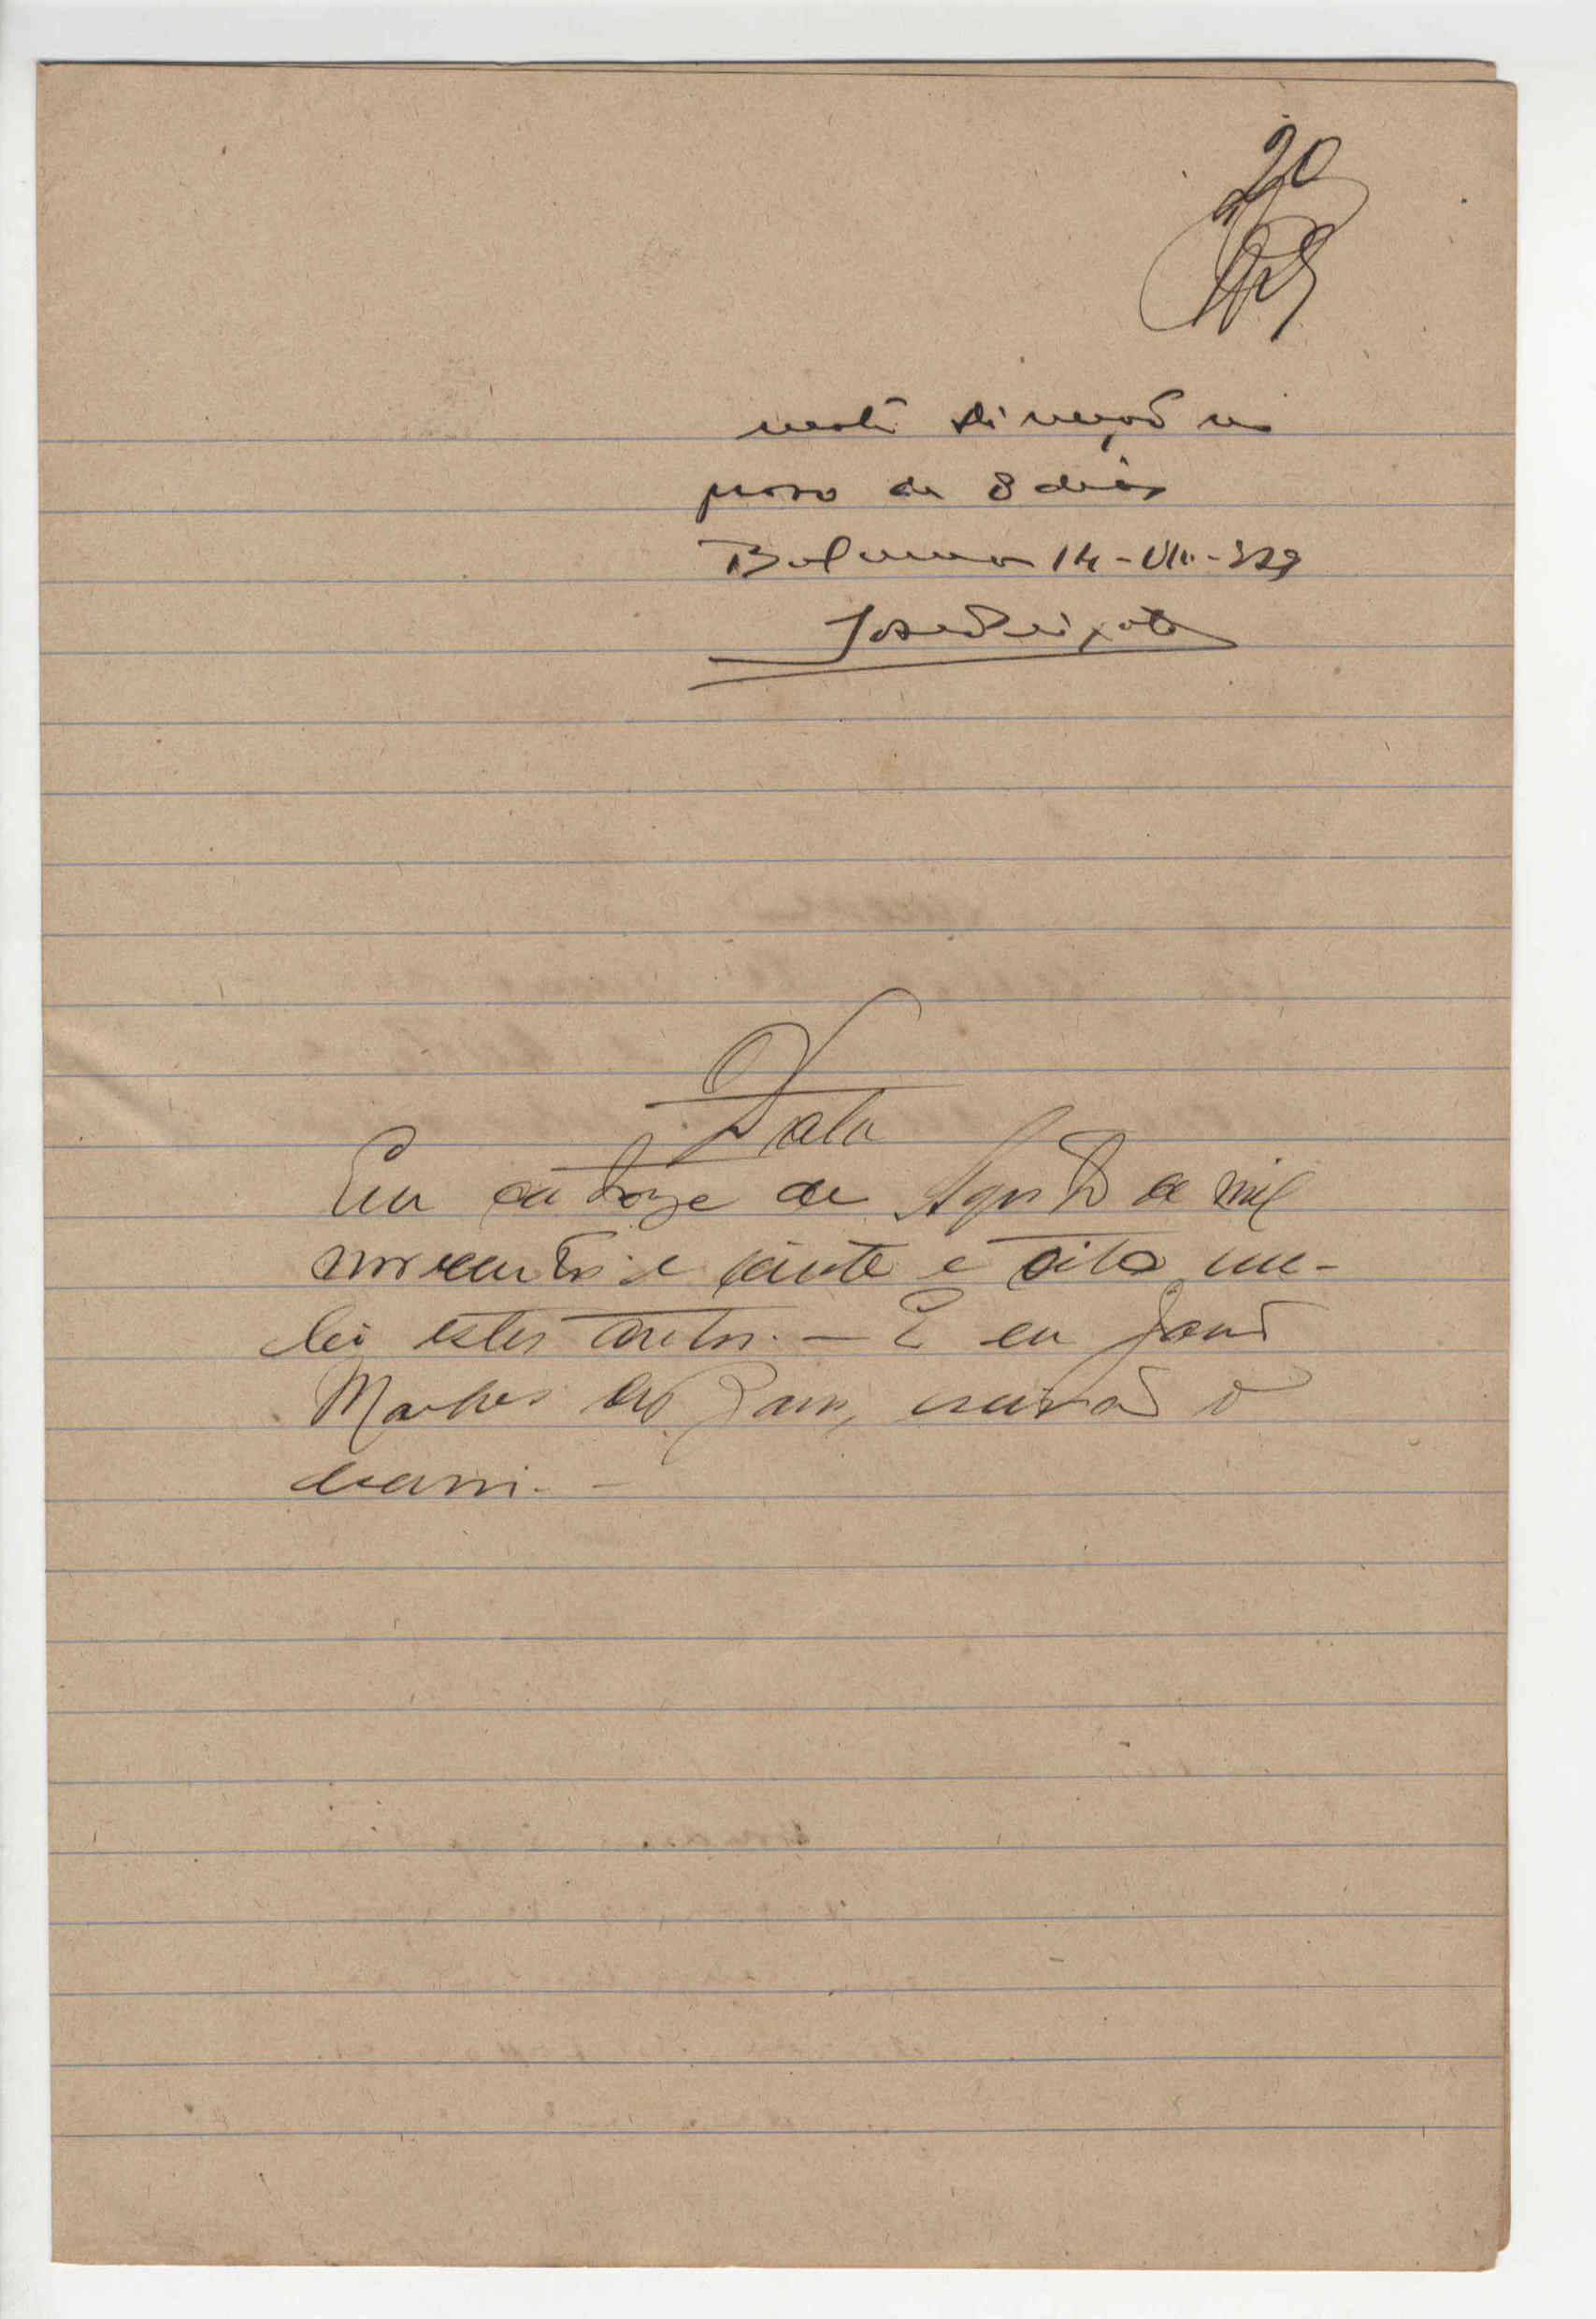 20
nesta direção no
praso de 8 dias
Bolama 14-VIII-928
José Peixoto
Data
Em catorze de Agosto de mil
novecentos e vinte e oito me
estes autos. — E eu João
Marques de Barros, escrivão o
escrevi. -